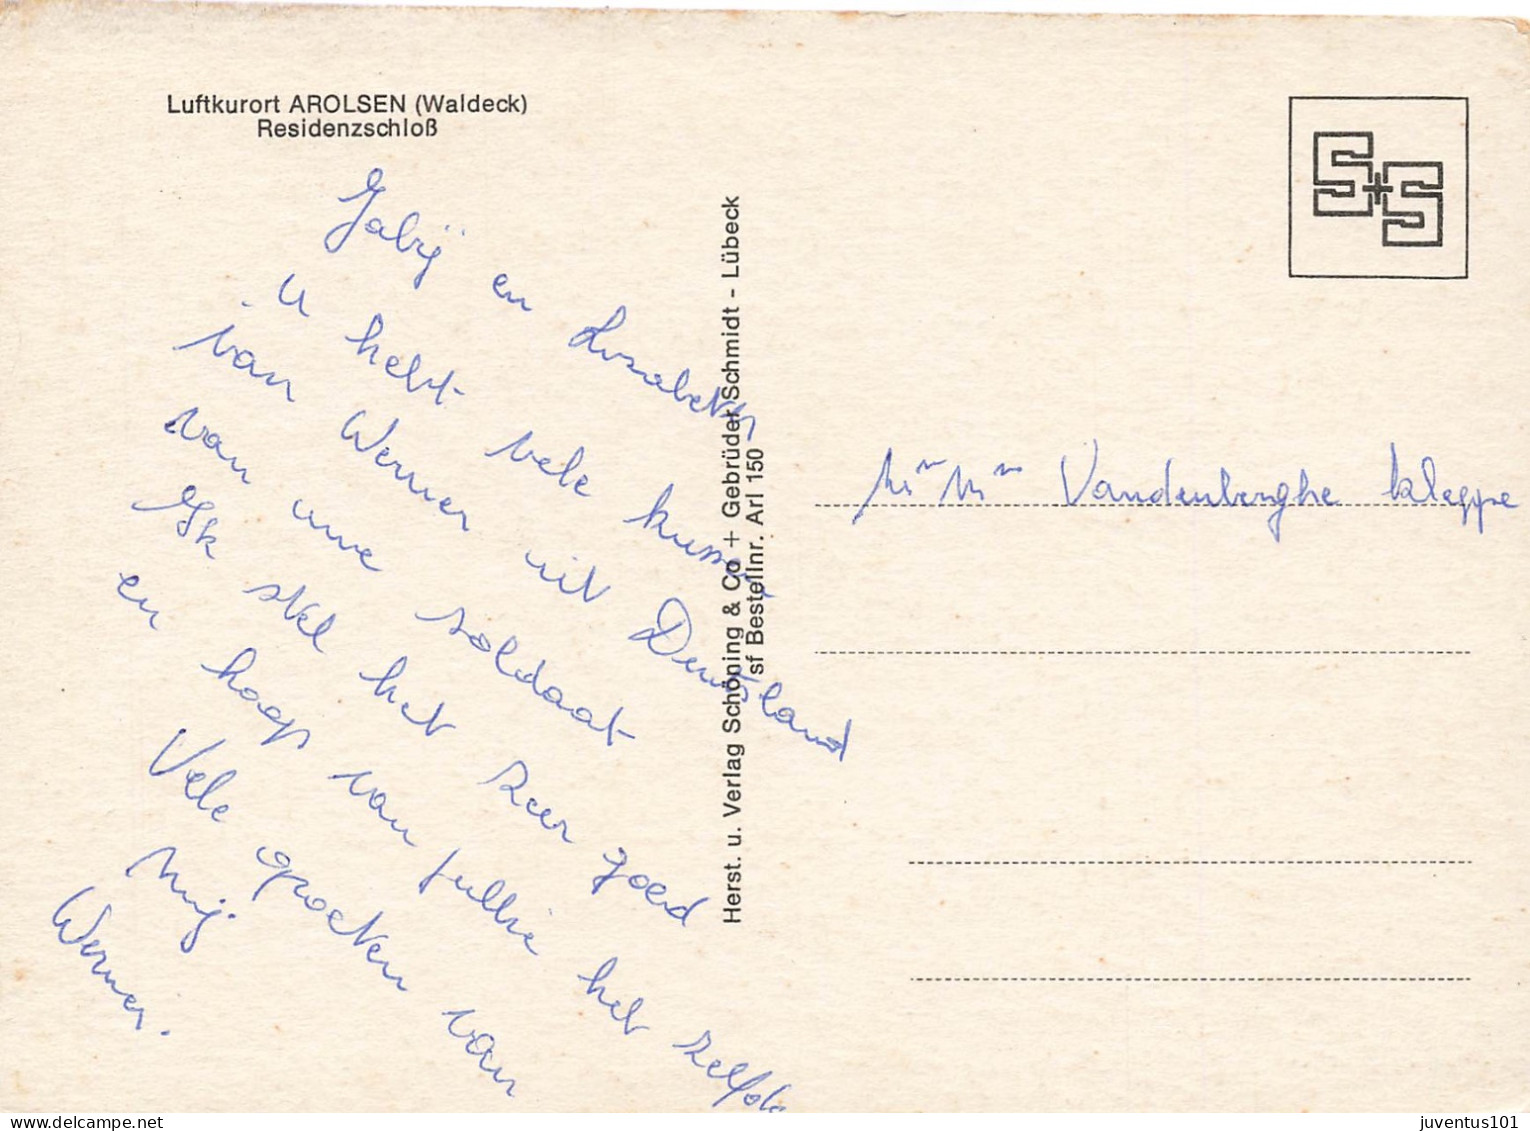 Luftkurort AROLSEN (Waldeck)
Residenzschloß
Gabÿ en Lisabeth
U hebt vele kussen
van Werner uit Deutsland
van uwe soldaat
Ik stel het zeer goed
en hoop van jullie het zelfde
Vele groeten van
mij.
Werner.
Herst. u. Verlag Schöning & Co + Gebrüder Schmidt - Lübeck
sf Bestellnr. Arl 150
S+S
Mr Mm Vandenberghe Kleppe
juventus101